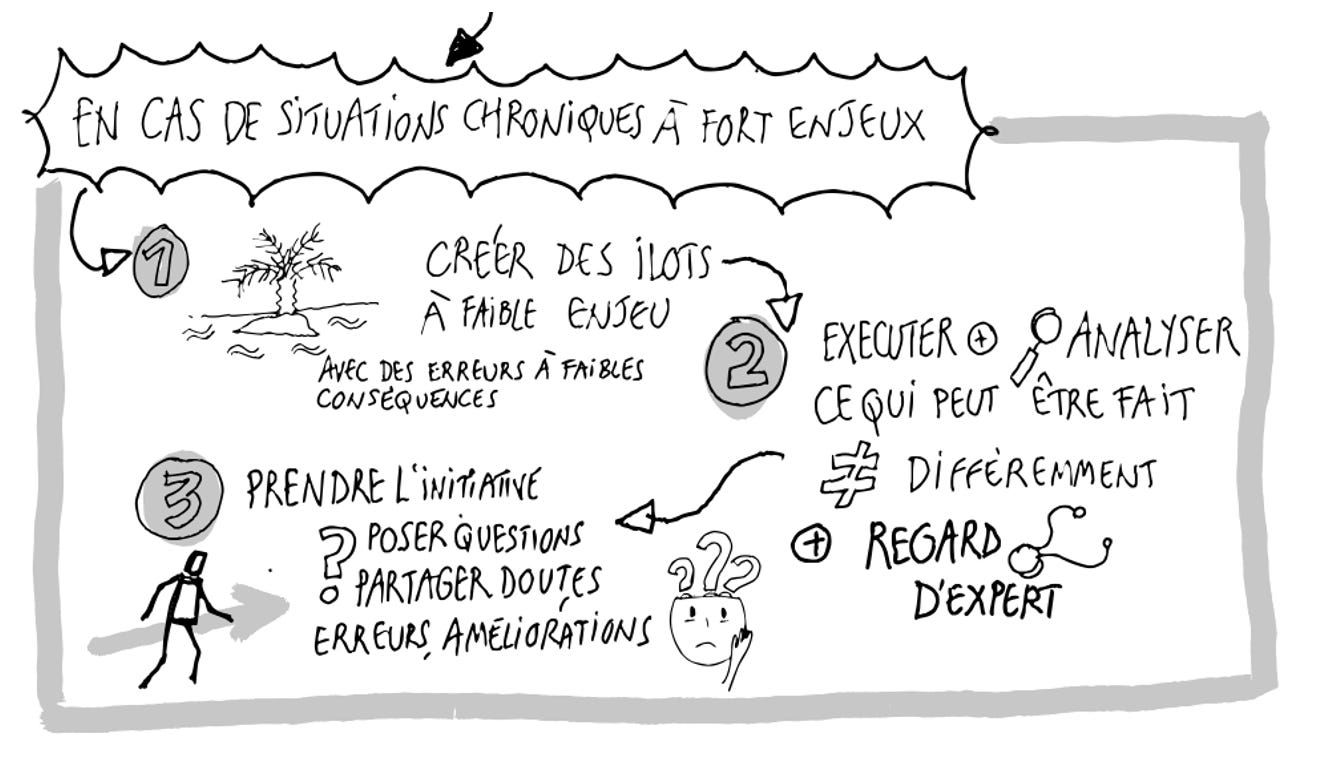 EN CAS DE SITUATIONS CHRONIQUES À FORT ENJEUX
1
CRÉER DES ILOTS
À FAIBLE ENJEU
AVEC DES ERREURS À FAIBLES
CONSÉQUENCES
2
EXECUTER + ANALYSER
CE QUI PEUT ÊTRE FAIT
≠ DIFFÈREMMENT
+ REGARD
D'EXPERT
3
PRENDRE L'INITIATIVE
? POSER QUESTIONS
PARTAGER DOUTES,
ERREURS, AMÉLIORATIONS
???